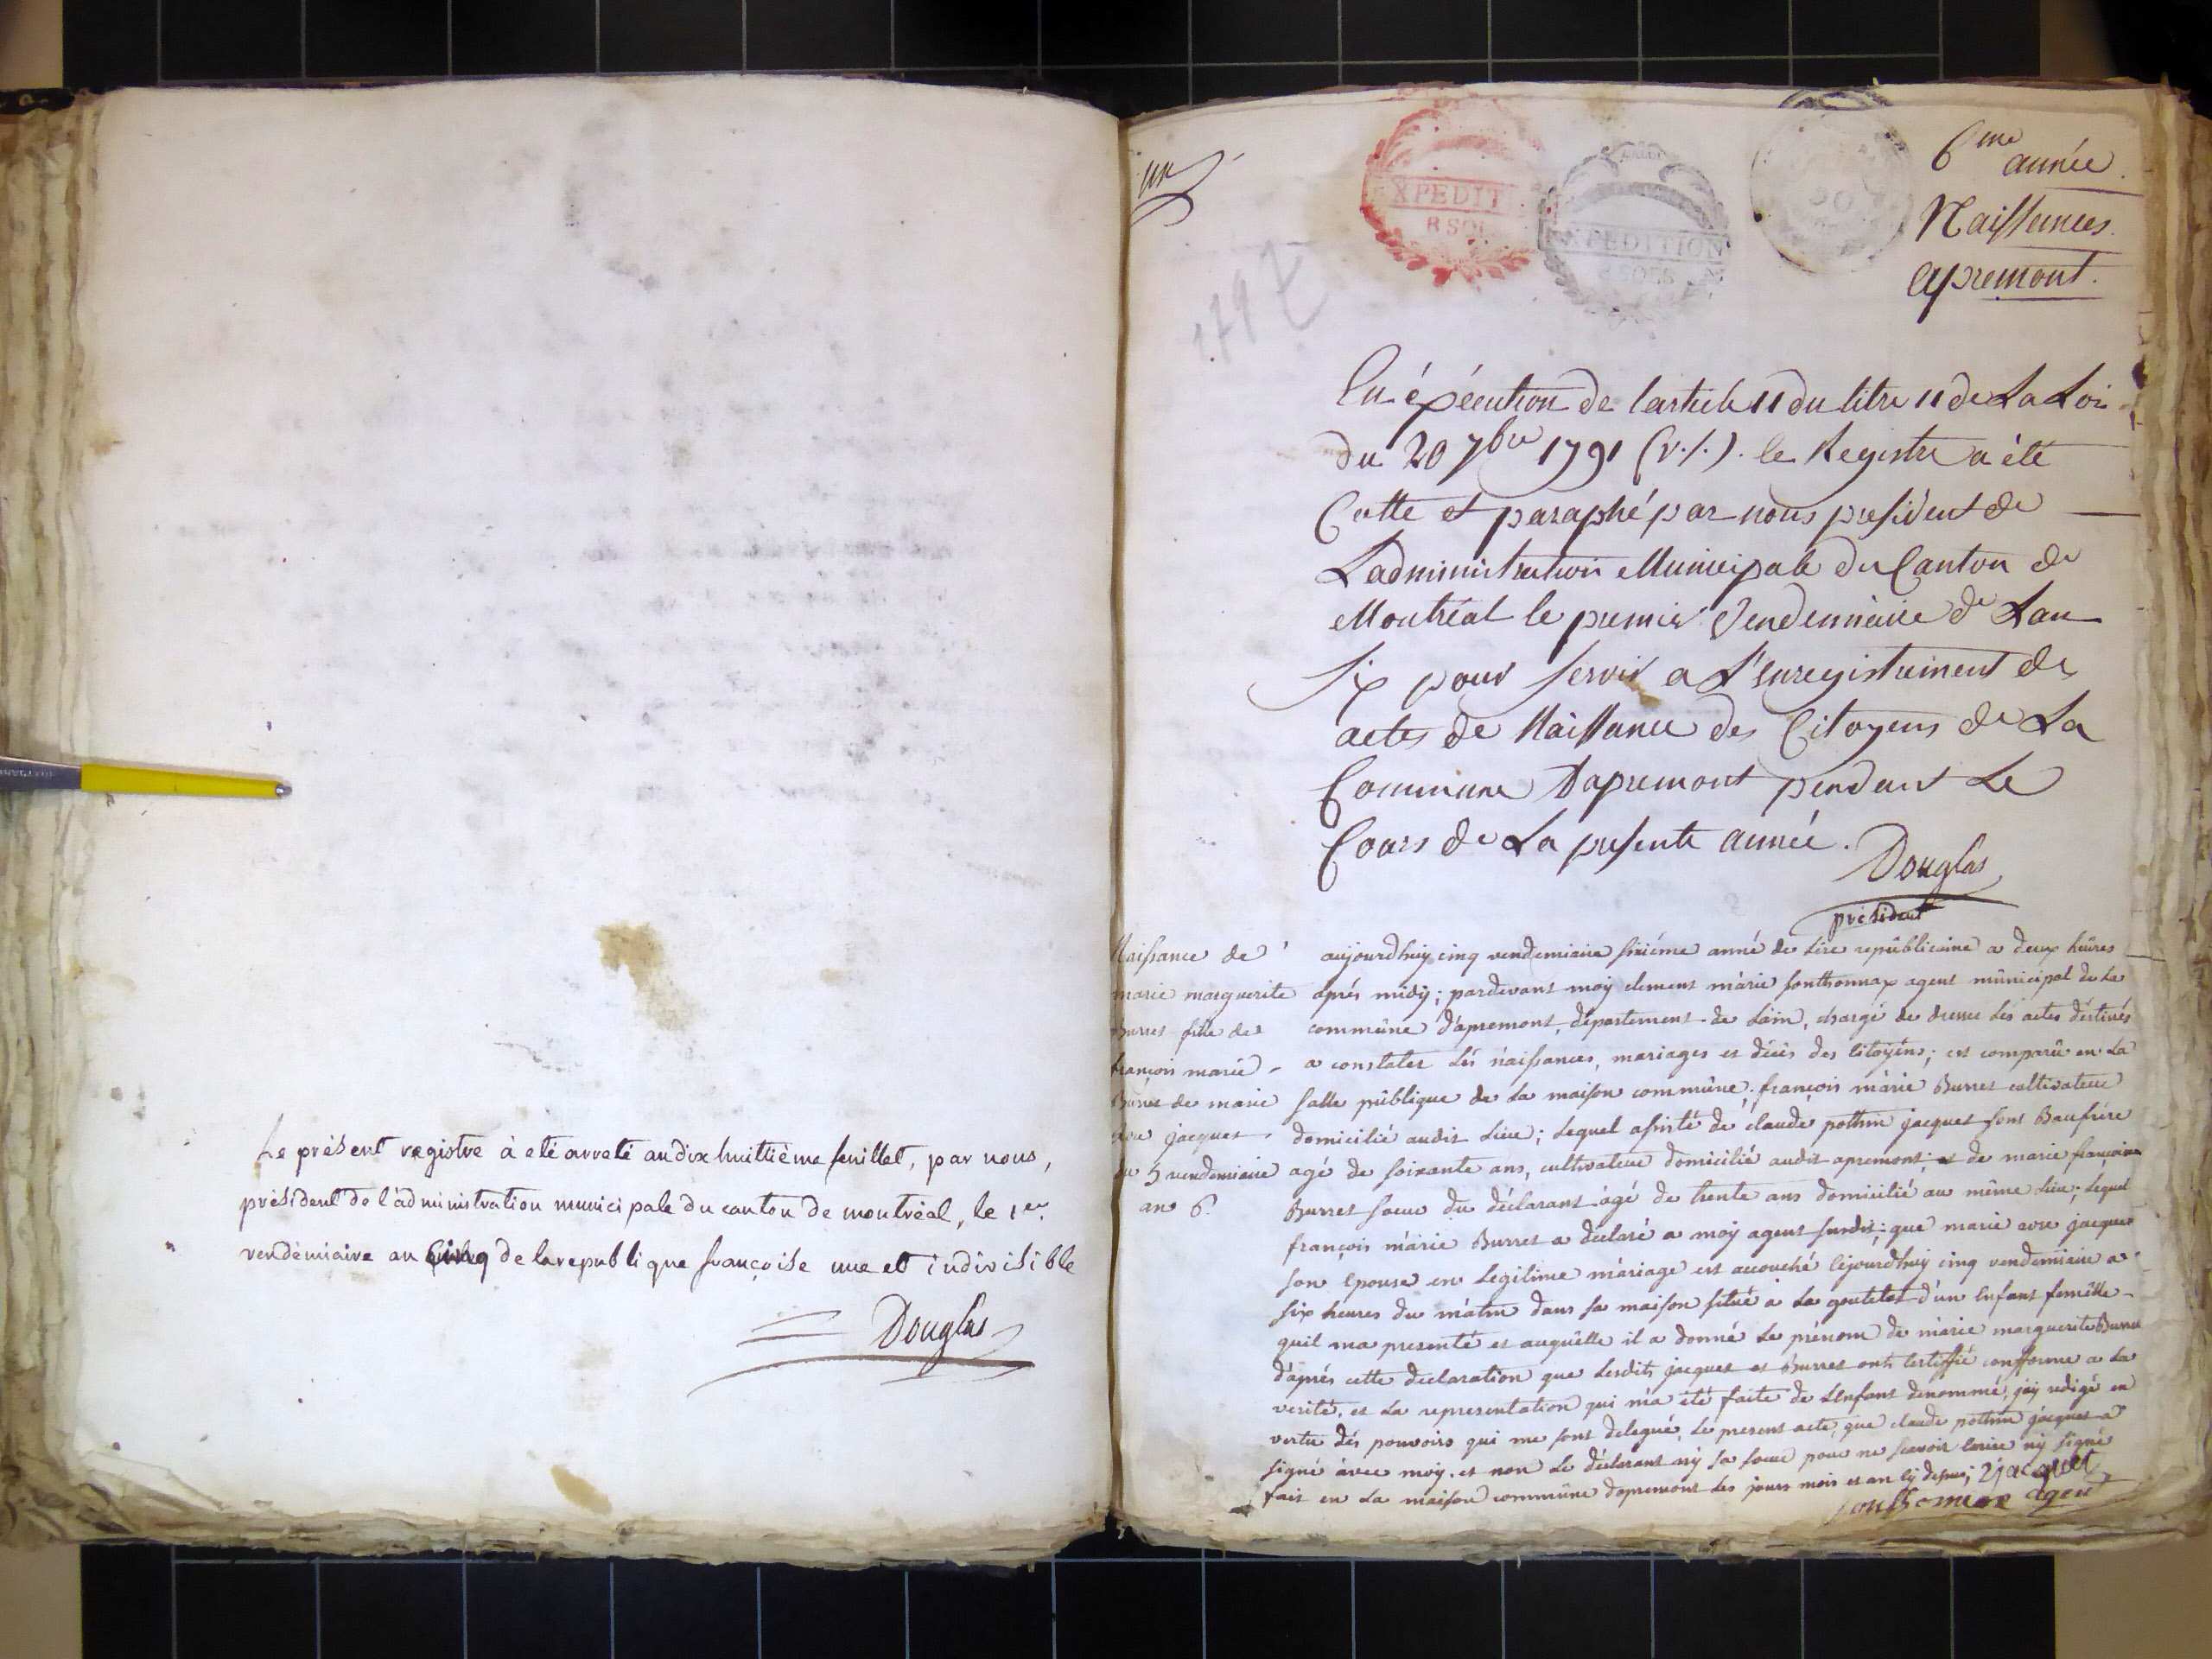 Le présent registre à eté arreté au dix huittième feuillet, par nous,
président de l'administration municipale du canton de montréal, le 1er
vendémiaire an cinq de la republique françoise une et indivisible
Douglas
un
1797
EXPEDIT
8 SOL
EXPEDITION
8 SOLS
6eme année
Naissances
apremont.
En éxécution de l'article 11 du titre 11 de La Loi
du 20 7bre 1791 (v.s.). le Registre a été
Cotté et paraphé par nous president de
L'administration Municipale du Canton de
Montréal le premier Vendemiaire de Lan
Six pour Servir a L'enregistrement des
actes de Naissance des Citoyens de La
Commune Dapremont pendant Le
Cours de La presente année.
Douglas
président
Naissance de
marie marguerite
Burret fille de
françois marie
Burret de marie
jacquet
du 5 vendemiaire
an 6.
aujourdhuy cinq vendemiaire sixiéme anné de Lére republicaine a deux heures
aprés midy; pardevant moy clement màrie sonthonnax agent municipal de La
commune d'apremont, département de Lain, chargé de dresser Les actes déstinés
a constater Les naissances, mariages et décès des citoyens; est comparu en La
salle publique de La maison commune, françois màrie Burret cultivateur
domicilié audit Lieu; Lequel assisté de claude pothin jacquet son Baufrére
agé de soixante ans, cultivateur domicilié audit apremont; et de marie françoise
Burret soeur du déclarant agé de trente ans domicilié au même Lieu; Lequel
françois màrie Burret a declaré a moy agent susdit; que marie jacquet
son epouse en Legitime màriage est accouché cejourdhuy cinq vendemiaire a
six heures du màtin dans sa maison situé a La goutelet d'un Enfant femelle
quil ma presenté et auquelle il a donné Le prénom de màrie marguerite Burret
d'après cette declaration que Lesdits jacquet et Burret ont certiffié confforme a La
verité, et La representation qui m'a été faite de L'Enfant denommé, j'ay redigé en
vertu dés pouvoirs qui me sont delegué, Le present acte, que claude pothin jacquet a
signé avec moy, et non Le déclarant ny sa soeur pour ne scavoir Ecrire ny signé
fait en La maison commune dapremont Les jours mois et an cy dessus; jacquet
sonthonnax agent